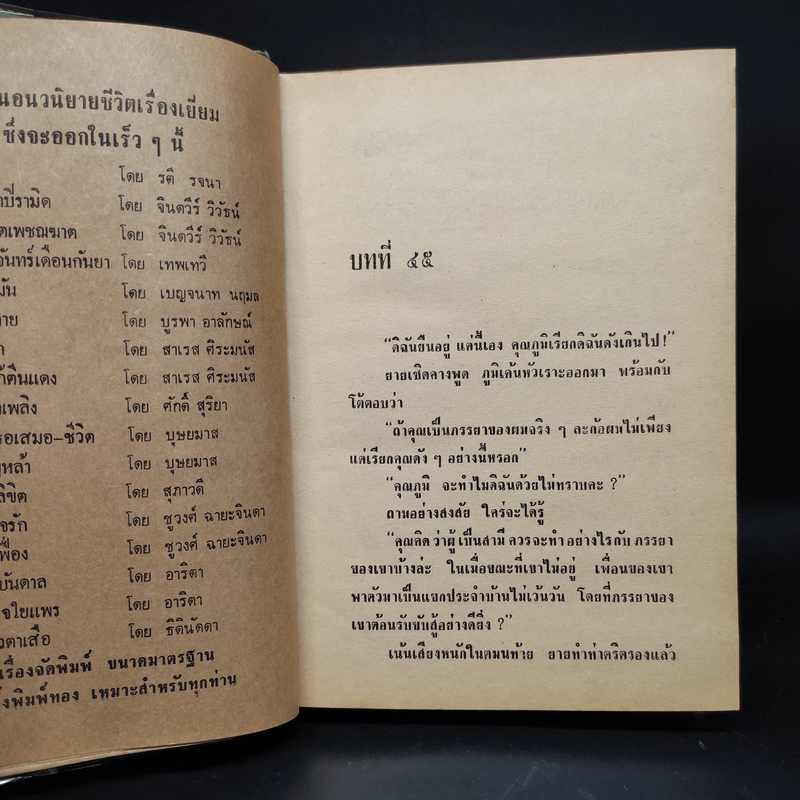 นอนวนิยายชีวิตเรื่องเยี่ยม
ซึ่งจะออกในเร็ว ๆ นี้
โดย รตี รจนา
าปีรามิด โดย จินตวีร์ วิวัธน์
ตเพชฌฆาต โดย จินตวีร์ วิวัธน์
จันทร์เดือนกันยา โดย เทพเทวี
มัน โดย เบญจนาท นฤมล
าย โดย บูรพา อาลักษณ์
โดย สาเรส ศิระมนัส
ก้ตีนแดง โดย สาเรส ศิระมนัส
เพลิง โดย ศักดิ์ สุริยา
รอเสมอ-ชีวิต โดย บุษยมาส
หล้า โดย บุษยมาส
ลิขิต โดย สุภาวดี
จรัก โดย ชูวงศ์ ฉายะจินดา
เฟื่อง โดย ชูวงศ์ ฉายะจินดา
บันดาล โดย อาริตา
จใยแพร โดย อาริตา
วตาเสือ โดย ธิตินัดดา
เรื่องจัดพิมพ์ ขนาดมาตรฐาน
งพิมพ์ทอง เหมาะสำหรับทุกท่าน
บทที่ ๔๕
“ดิฉันยืนอยู่ แค่นี้เอง คุณภูมิเรียกดิฉันดังเกินไป!”
ยายเชิดคางพูด ภูมิเค้นหัวเราะออกมา พร้อมกับ
โต้ตอบว่า
“ถ้าคุณเป็นภรรยาของผมจริง ๆ ละก้อผมไม่เพียง
แต่เรียกคุณดัง ๆ อย่างนี้หรอก”
“คุณภูมิ จะทำไมดิฉันด้วยไม่ทราบคะ ?”
ถามอย่างสงสัย ใคร่จะได้รู้
“คุณคิดว่าผู้เป็นสามี ควรจะทำอย่างไรกับ ภรรยา
ของเขาบ้างล่ะ ในเมื่อขณะที่เขาไม่อยู่ เพื่อนของเขา
พาตัวมาเป็นแขกประจำบ้านไม่เว้นวัน โดยที่ภรรยาของ
เขาต้อนรับขับสู้อย่างดียิ่ง ?”
เน้นเสียงหนักในตมนท้าย ยายทำท่าตริตรองแล้ว